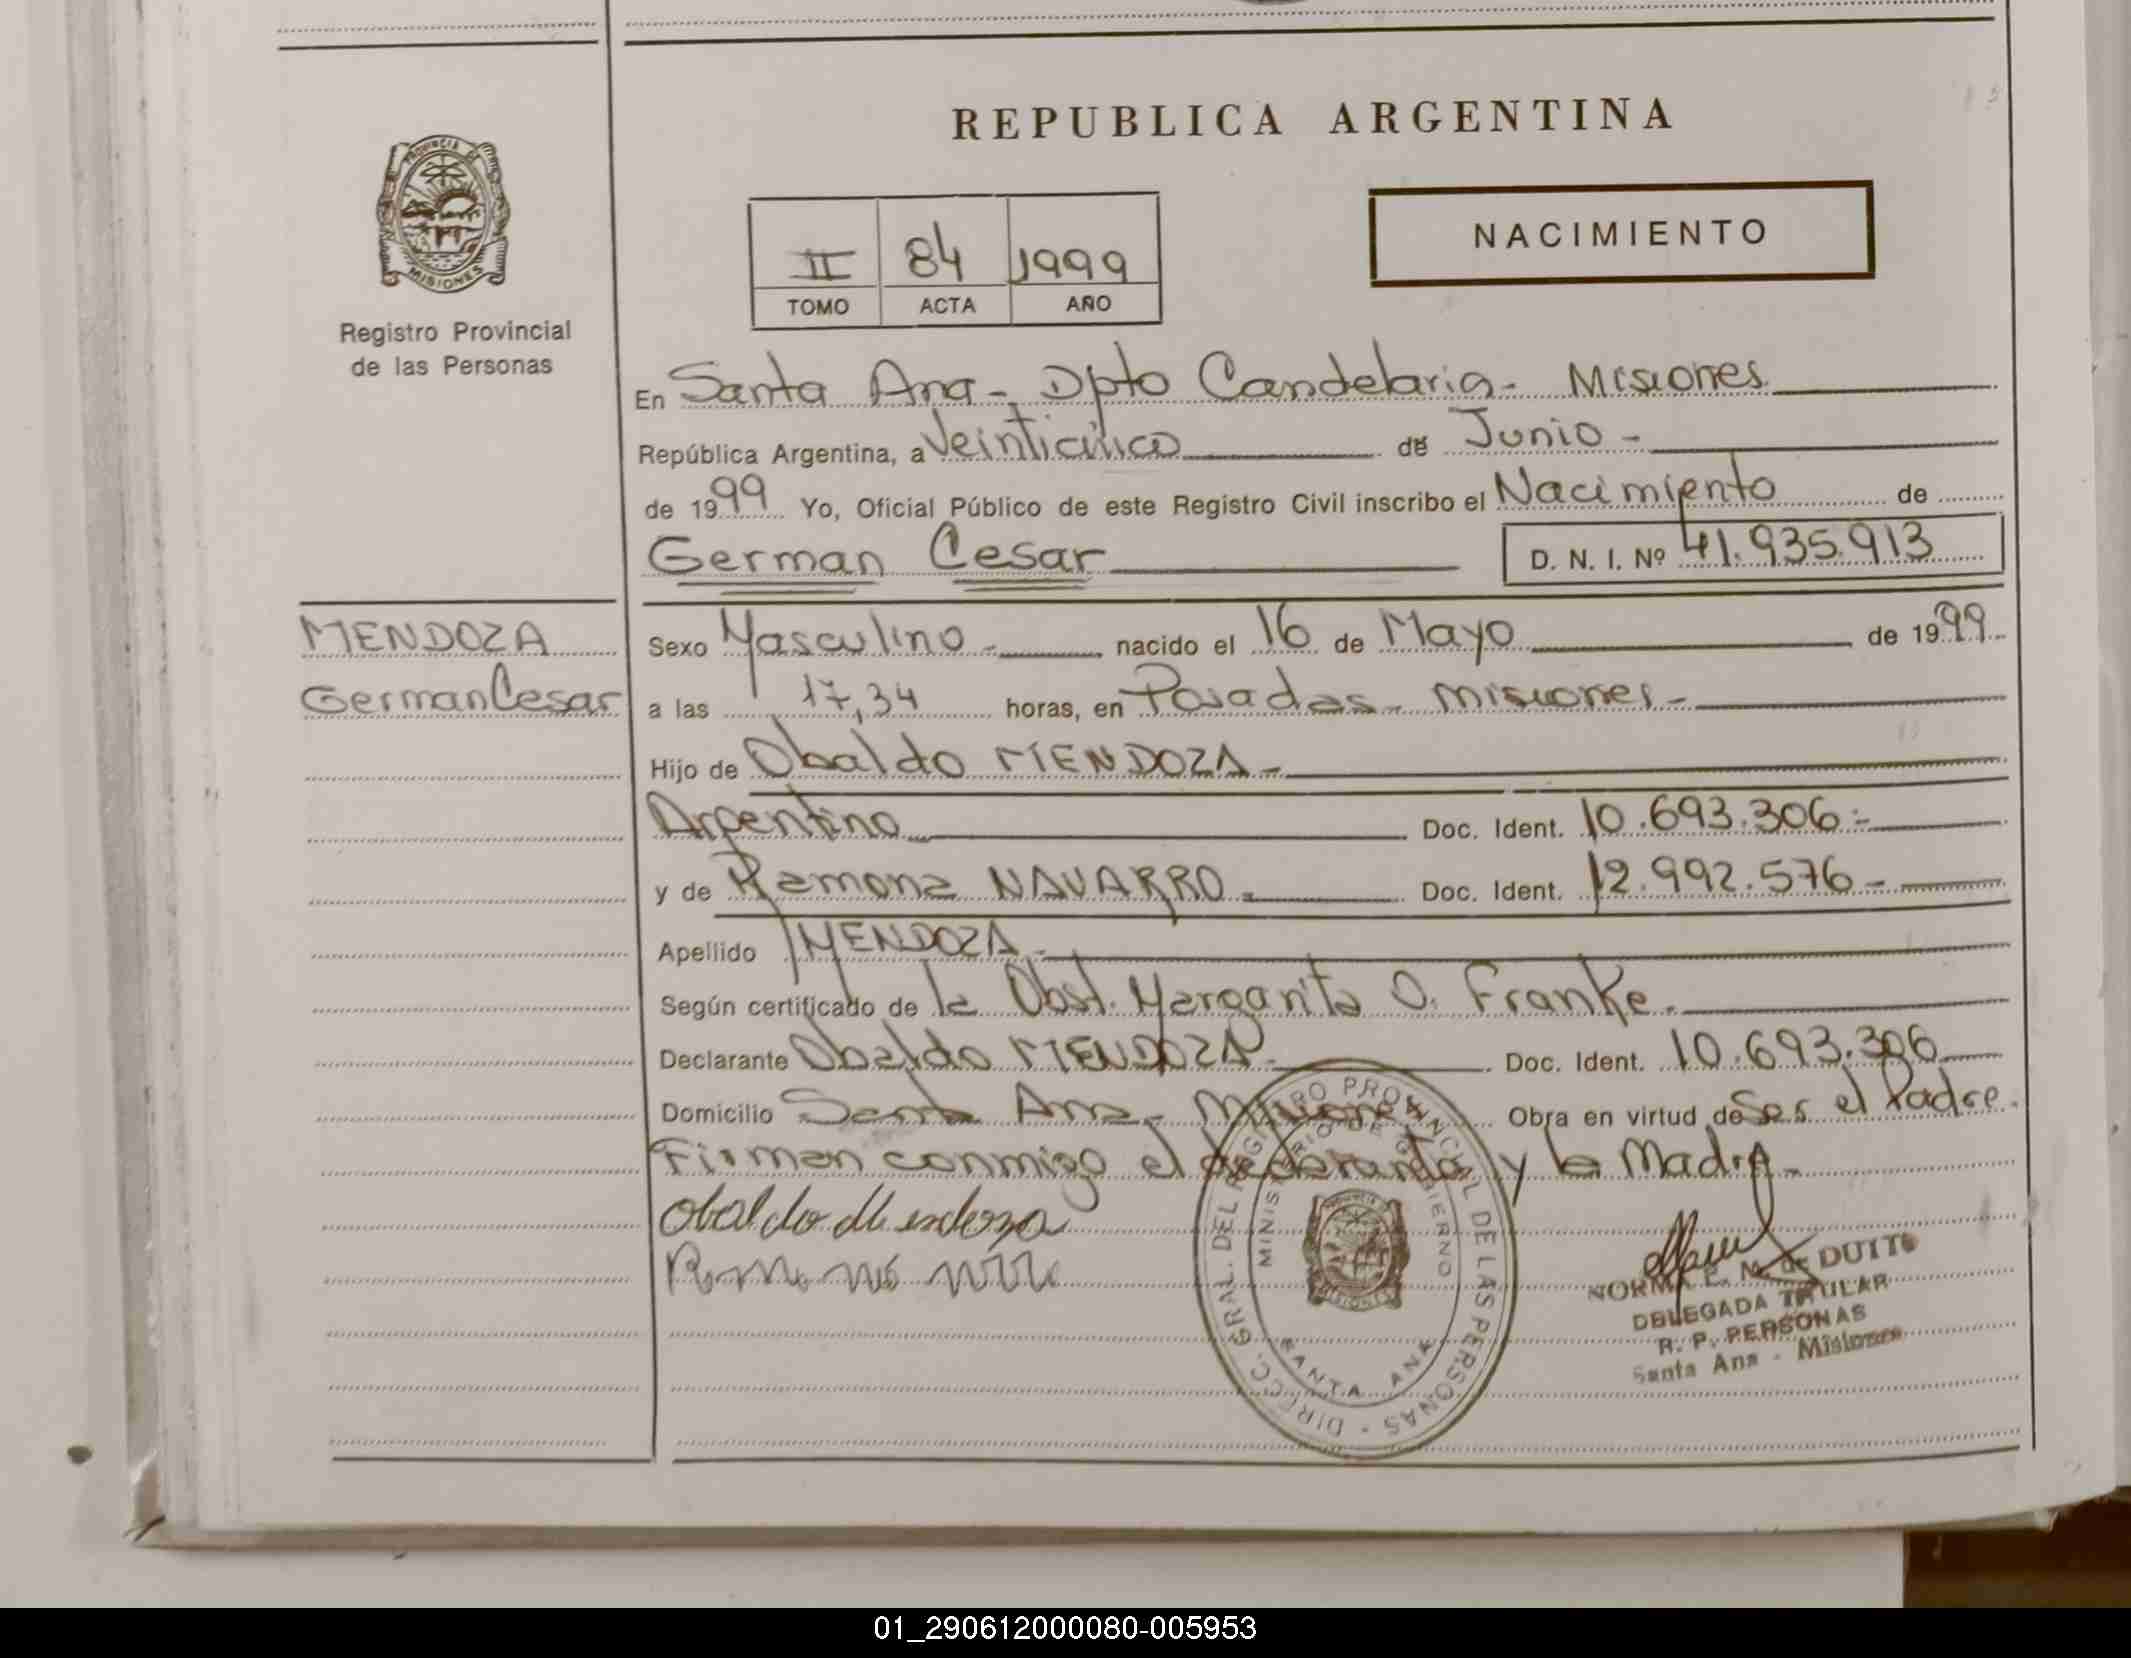 REPUBLICA ARGENTINA
NACIMIENTO
II 84 1999
TOMO ACTA AÑO
PROVINCIA DE
MISIONES
Registro Provincial
de las Personas
En Santa Ana - Dpto Candelaria - Misiones
República Argentina, a Veinticinco de Junio -
de 1999 Yo, Oficial Público de este Registro Civil inscribo el Nacimiento de
German Cesar D. N. I. Nº 41.935.913
MENDOZA
German Cesar
Sexo Masculino - nacido el 16 de Mayo de 1999
a las 17,34 horas, en Posadas - Misiones -
Hijo de Obaldo MENDOZA -
Argentino Doc. Ident. 10.693.306 -
y de Ramona NAVARRO - Doc. Ident. 12.992.576 -
Apellido MENDOZA -
Según certificado de la Obst. Margarita O. Franke.
Declarante Obaldo MENDOZA - Doc. Ident. 10.693.306
Domicilio Santa Ana - Misiones Obra en virtud de Ser el Padre.
Firman conmigo el declarante y la Madre -
Obaldo Mendoza
DIRECC. GRAL. DEL REGISTRO PROVINCIAL DE LAS PERSONAS -
MINISTERIO DE GOBIERNO
SANTA ANA
NORMA E. M. de DUITO
DELEGADA TITULAR
R. P. PERSONAS
Santa Ana - Misiones
01_290612000080-005953